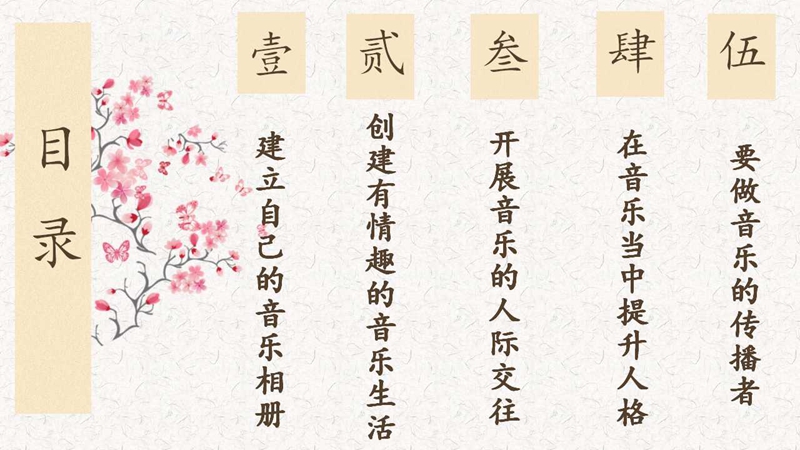 目录
壹
建立自己的音乐相册
贰
创建有情趣的音乐生活
叁
开展音乐的人际交往
肆
在音乐当中提升人格
伍
要做音乐的传播者